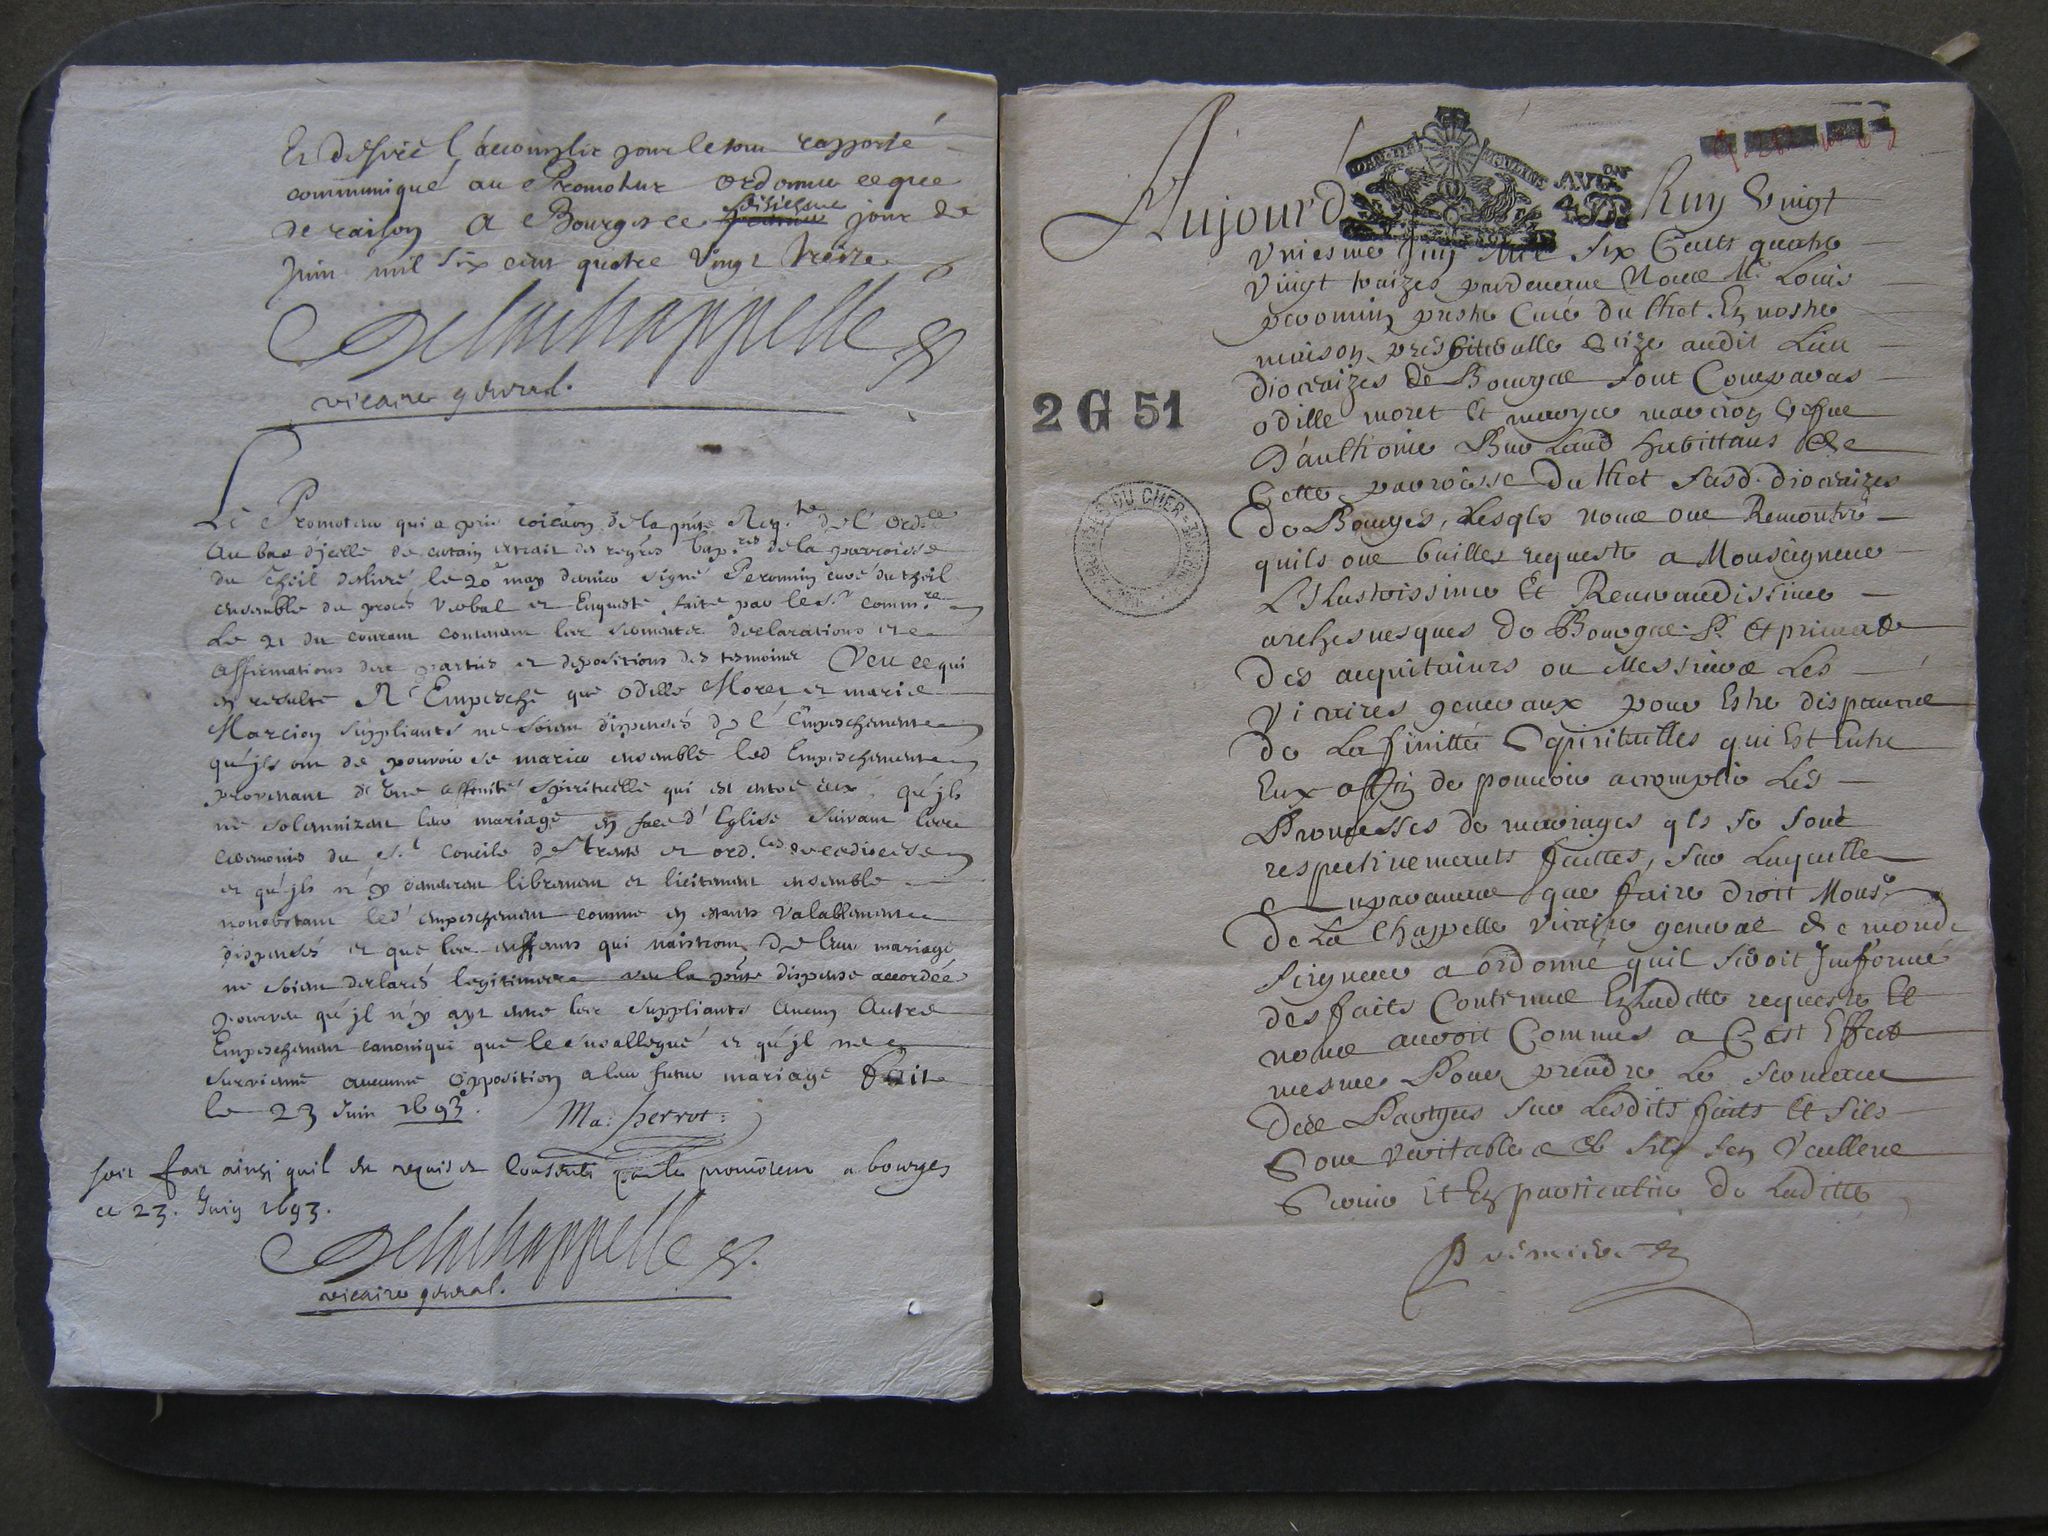 Et desiré l'accomplir pour le tout rapporté
communiqué au Promoteur ordonner ce que
de raison A Bourges ce sisiesme jour de
Juin mil six cent quatre vingt treize
Delachappelle
vicaire general.
Le Promoteur qui a pris coicaon de la pnte Reqte de l'ordce
au bas d'jcelle de certain extrait des regres bapres de la parroisse
du Theil deslivré le 20 may dernier signé Peromin curé du theil
ensemble du procés verbal et Enqueste faite par le Sr commre
Le 21 du courant contenant les serments declarations et
affirmations des parties et depositions des tesmoins Veu ce qui
en resulte N'Empesche que Odille Moret et marie
Marcion suppliants ne soient dispensés de l'Empeschement
qu'jls ont de pouvoir se marier ensemble led Empeschement
provenant d'une affinité spirituelle qui est entre eux, qu'jls
ne solemnizent leur mariage en face d'Eglise suivant les
ceremonies du St Concile de Trente et ordces de ce diocese
et qu'jls n'y demeurent librement et licitement ensemble
nonobstant led' empeschement comme en estants valablement
dispensés et que les enffants qui naistront de leur mariage
ne soient declarés legitimes veu la pnte dispense accordée
pourveu qu'jl n'y ayt entre les suppliants Aucun Autre
Empeschement canonique que le susallegué et qu'jl ne
survienne aucunne opposition a leur futur mariage Fait
le 23 Juin 1693.
Ma: perrot:
soit fait ainsi quil est requis et consenti par le promoteur a bourges
ce 23. Juin 1693.
Delachappelle
vicaire general.
Aujourd Huy vingt
GEN DE MOULINS
AVRON
2 G 51
ARCHIVES DU CHER - BOURGES
Uniesme Juin Mil six Cents quatre
vingt traizes pardevant Nous Me Louis
peromin prestre Curé du theil En nostre
maison presbiteralle Size audit Lieu
diocaizes de Bourges sont Comparas
odille moret Et marye marcion vefue
d'anthoine Bur Laud habittans de
Cette parroisse du theil susd. diocaizes
de Bourges, Lesqls nous ont Remontré
quils ont bailles requeste a Monseigneur
L'Illustrissime Et Reuerandissime
archesuesques de Bourges Pt Et primat
des acquitaines ou Messieurs Les
vicaires generaux pour Estre dispancé
de Lafinitté Spirituelles qui Est Entre
Eux affin de pouuoir acomplir Les
Promesses de mariages qls se sont
respectiuemants faittes, sur Laquelle
auparauant que faire droit Monsr
De La Chappelle vicaire general de mond
seigneur a ordonné quil seroit Jnformé
des faits Contenus En Laditte requeste Et
nous auroit Commis a C'est Effect
mesme Pour prendre Le serment
des Partyes sur Lesdits faits Et sils
sont veritables Et sils sen veullent
Seruir Et En particulier de Laditte